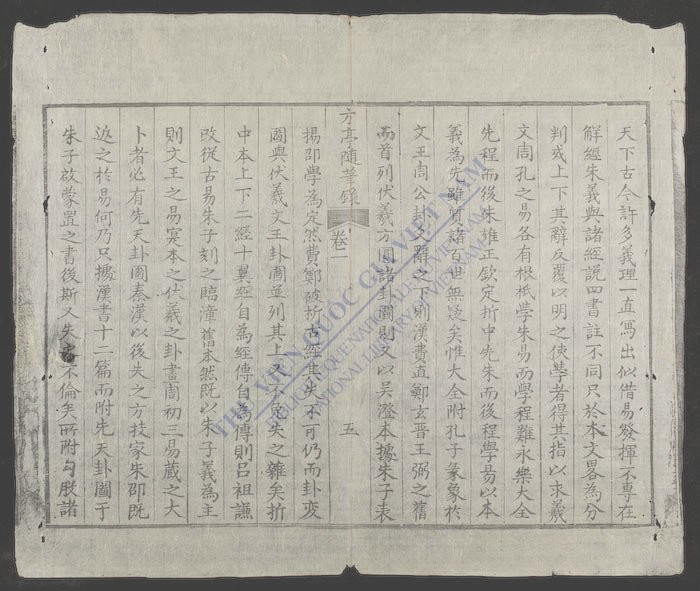 天下古今許多義理一直寫出似借易發揮不專在
解經朱義與諸經説四書註不同只於本文畧為分
判或上下其辭反覆以明之使筮者得其指以求義
文周孔之易各有根柢學朱易而學程難永樂大全
先程而後朱雄正欽定折中先朱而後程學易以本
義為先雖質諸百世無疑矣惟大全附孔子彖象於
文王周公卦爻辭之下則漢費直鄭玄晉王弼之舊
而首列伏羲方圓諸卦圖則又以吳澄本據朱子表
方亭隨筆錄 卷一 五
揚邵學為定然費鄭破折古經其失不可仍而卦变
圖與伏羲文王卦圖並列其上又不免失之雜矣折
中本上下二經十翼經自為經傳自為傳則呂祖謙
改從古易朱子刻之臨潼舊本然既以朱子義為主
則文王之易寔本之伏羲之卦畫周初三易蔵之大
卜者必有先天卦圖秦漢以後失之方技家朱邵既
返之於易何乃只據漢書十二篇而附先天卦圖于
朱子啟蒙置之書後斯又失 不倫矣所附勾股諸
THƯ VIỆN QUỐC GIA VIỆT NAM
BIBLIOTHEQUE NATIONALE DU VIETNAM
NATIONAL LIBRARY OF VIETNAM